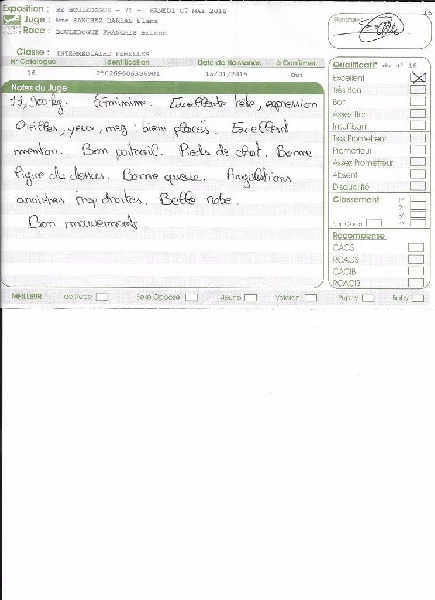 Exposition : RE BOULEDOGUE - 71 - SAMEDI 07 MAI 2016
16
Juge : Mme SANCHEZ
Signature :
Race : BOULEDOGUE FRANCAIS
Classe : INTERMEDIAIRE FEMELLES
N° Catalogue Identification Date de Naissance à Confirmer
16 15/01/2015 Oui
Qualificatif du n° 16
Excellent
Très Bon
Bon
Assez Bon
Insuffisant
Très Prometteur
Prometteur
Assez Prometteur
Absent
Disqualifié
Classement
Récompense
CACS
RCACS
CACIB
RCACIB
Notes du Juge
Féminine. Excellente tête, expression
Oreilles, yeux, nez bien placés. Excellent
menton. Bon poitrail. Pieds de chat. Bonne
ligne de dessus. Bonne queue. Angulations
arrières trop droites. Belle robe.
Bon mouvements
MEILLEUR de Race Sexe Opposé Jeune Vétéran Puppy Baby